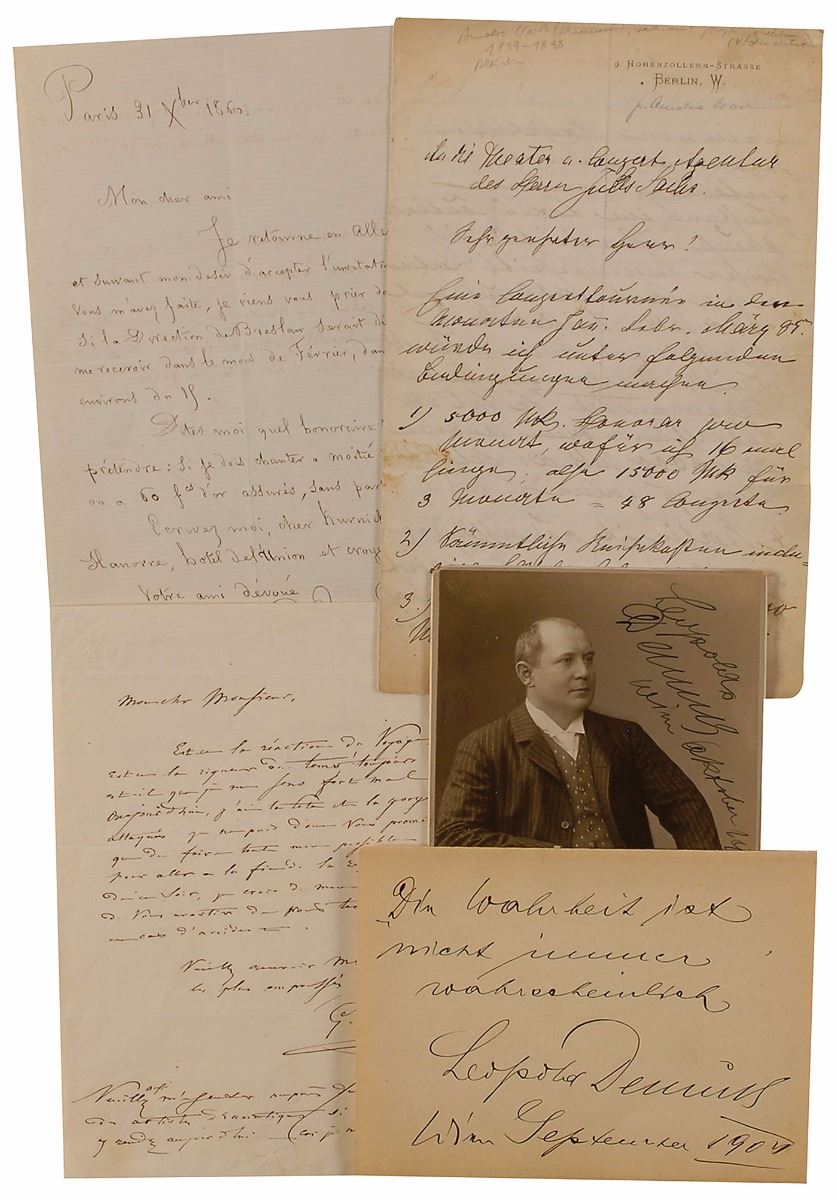 Paris 31 Xber 1860.
Mon cher ami
Je retourne en Alle
et suivant mon desir d'accepter l'invitatio
Vous m'avez faite, je viens vous prier de
si la Direction de Breslau serait di
me recevoir dans le mois de Février, dan
environs du 15.
Dites moi quel honoraire
prétendre: si je dois chanter a moitié
ou a 60 fcs d'or assurés, sans par
Ecrivez moi, cher
Hanovre, hotel de l'Union et croye
Votre ami dévoué
1839-1898
9. HOHENZOLLERN-STRASSE
BERLIN, W.
An die Theater u. Conzert Agentur
des Herrn Julls Sachs.
Sehr geehrter Herr!
Eine Conzerttournée in den
Monaten Jan. Febr. März 85.
würde ich unter folgenden
Bedingungen machen.
1) 5000 Mk. Honorar pro
Monat, wofür ich 16 mal
singe, also 15000 Mk für
3 Monate = 48 Conzerte.
2) Sämmtliche Reisekosten inclu-
3.)
Leopold
Demuth
Wien Oktober
Monsieur,
Est ce la réaction du Voyage
Est ce la rigueur du temps toujours
est il que je me sens fort mal
aujourd'hui, j'ai la tête et la gorge
attaqués je ne puis donc Vous prom
que de faire tout mon possible
pour aller a la fin de la
de ce Soir, je crois de mon
de Vous avertir
en cas d'accident.
Veuillez
les plus empressés
Veuillez
du artiste dramatique si
y rendez aujourd'hui
„Die Wahrheit ist
nicht immer
wahrscheinlich
Leopold Demuth
Wien September 1904